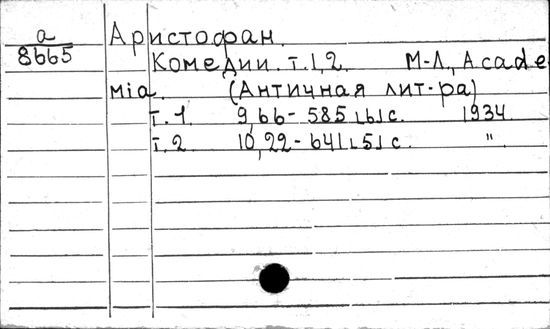 а Аристофан.
8665 Комедии. т.1,2. М-Л., Acade
mia. (Античная лит-ра)
т.1 9,66-585[6]с. 1934
т.2. 10,22-641[5]с. "